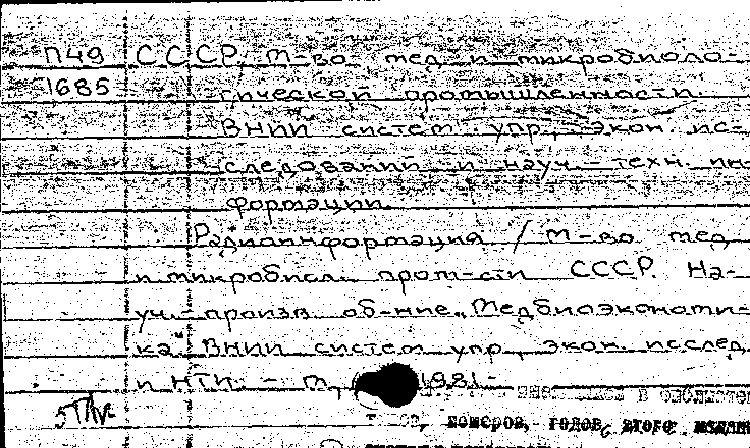 П49 СССР. М-во мед. и микробиоло-
1685 гической промышленности.
ВНИИ систем упр., экон. ис-
следований и науч.-техн. ин-
формации.
Радиоинформация / М-во мед.
и микробиол. пром-сти СССР. На-
уч.-произв. об-ние „Медбиоэкономи-
ка" ВНИИ систем упр., экон. исслед.
и НТИ. - М., 1981-
номеров, годов этого